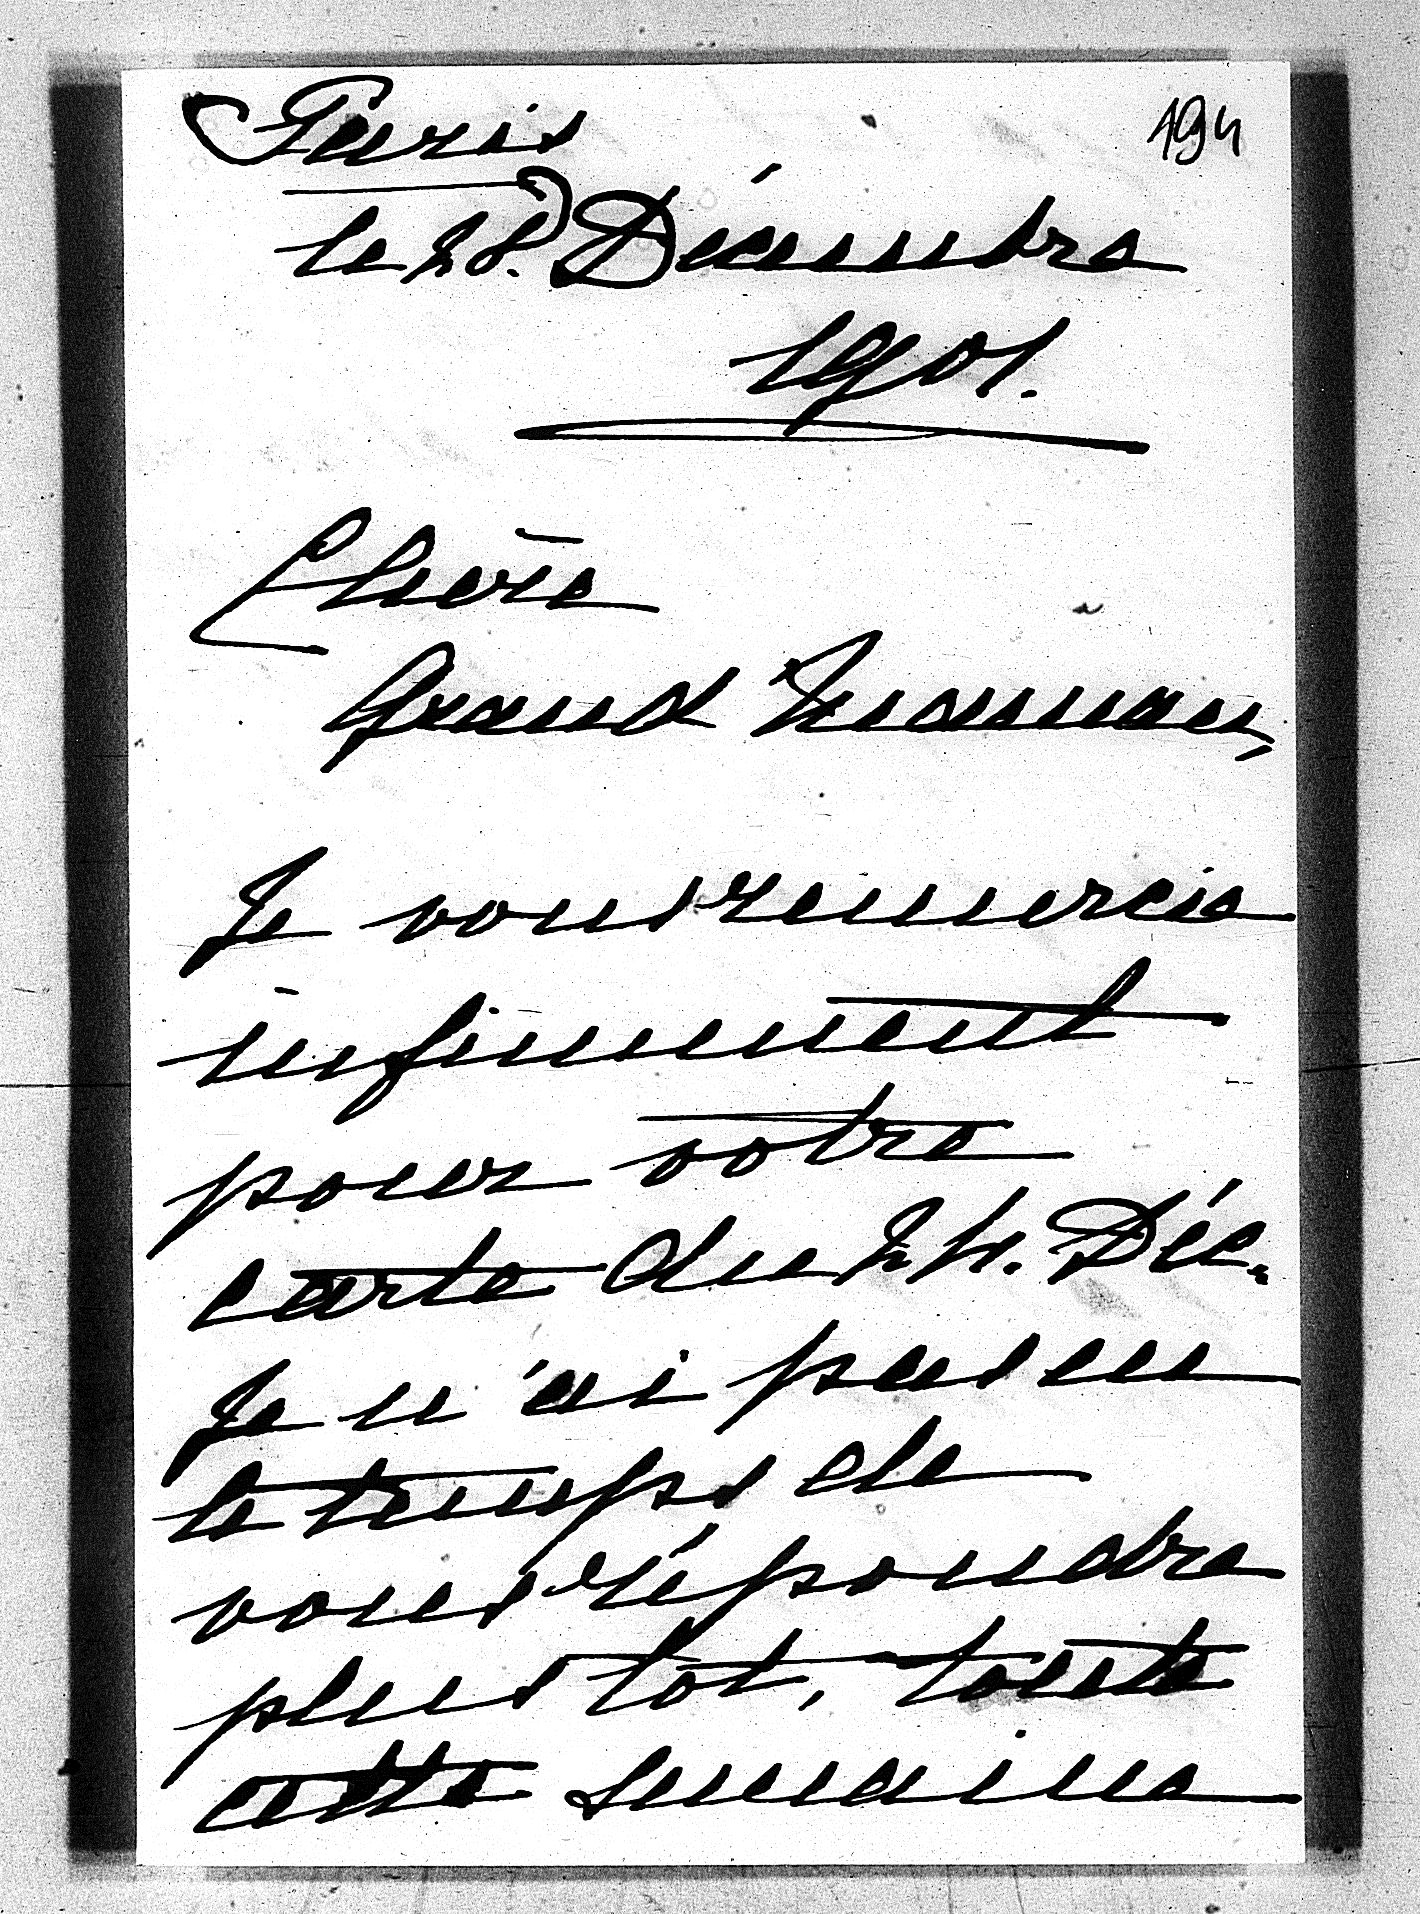 194
Paris
le 28. Décembre
1901.
Chère
Grand Maman,
Je vous remercie
infiniment
pour votre
carte du 24. Déc.
Je n'ai pas eu
le temps de
vous répondre
plus tôt, toute
cette semaine